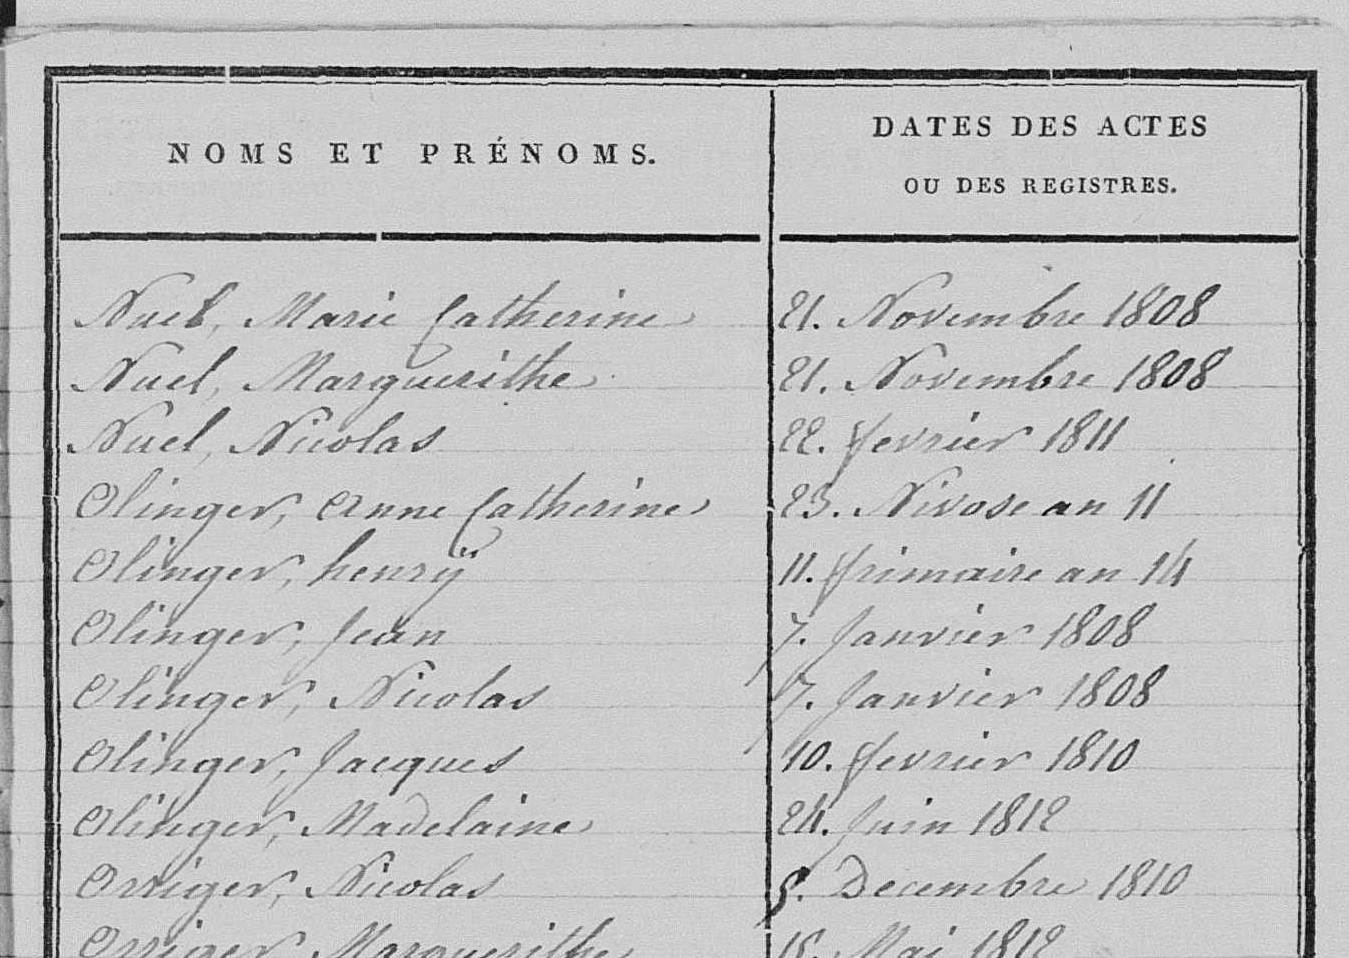 NOMS ET PRÉNOMS.
DATES DES ACTES
OU DES REGISTRES.
Nuel, Marie Catherine 21. Novembre 1808
Nuel, Marguerithe 21. Novembre 1808
Nuel, Nicolas 22. fevrier 1811
Olinger, Anne Catherine 23. Nivose an 11
Olinger, henrÿ 11. frimaire an 14
Olinger, Jean 7. Janvier 1808
Olinger, Nicolas 7. Janvier 1808
Olinger, Jacques 10. fevrier 1810
Olinger, Madelaine 24. Juin 1812
Orriger, Nicolas 5. Decembre 1810
Orriger Marguerithe Mai 1812